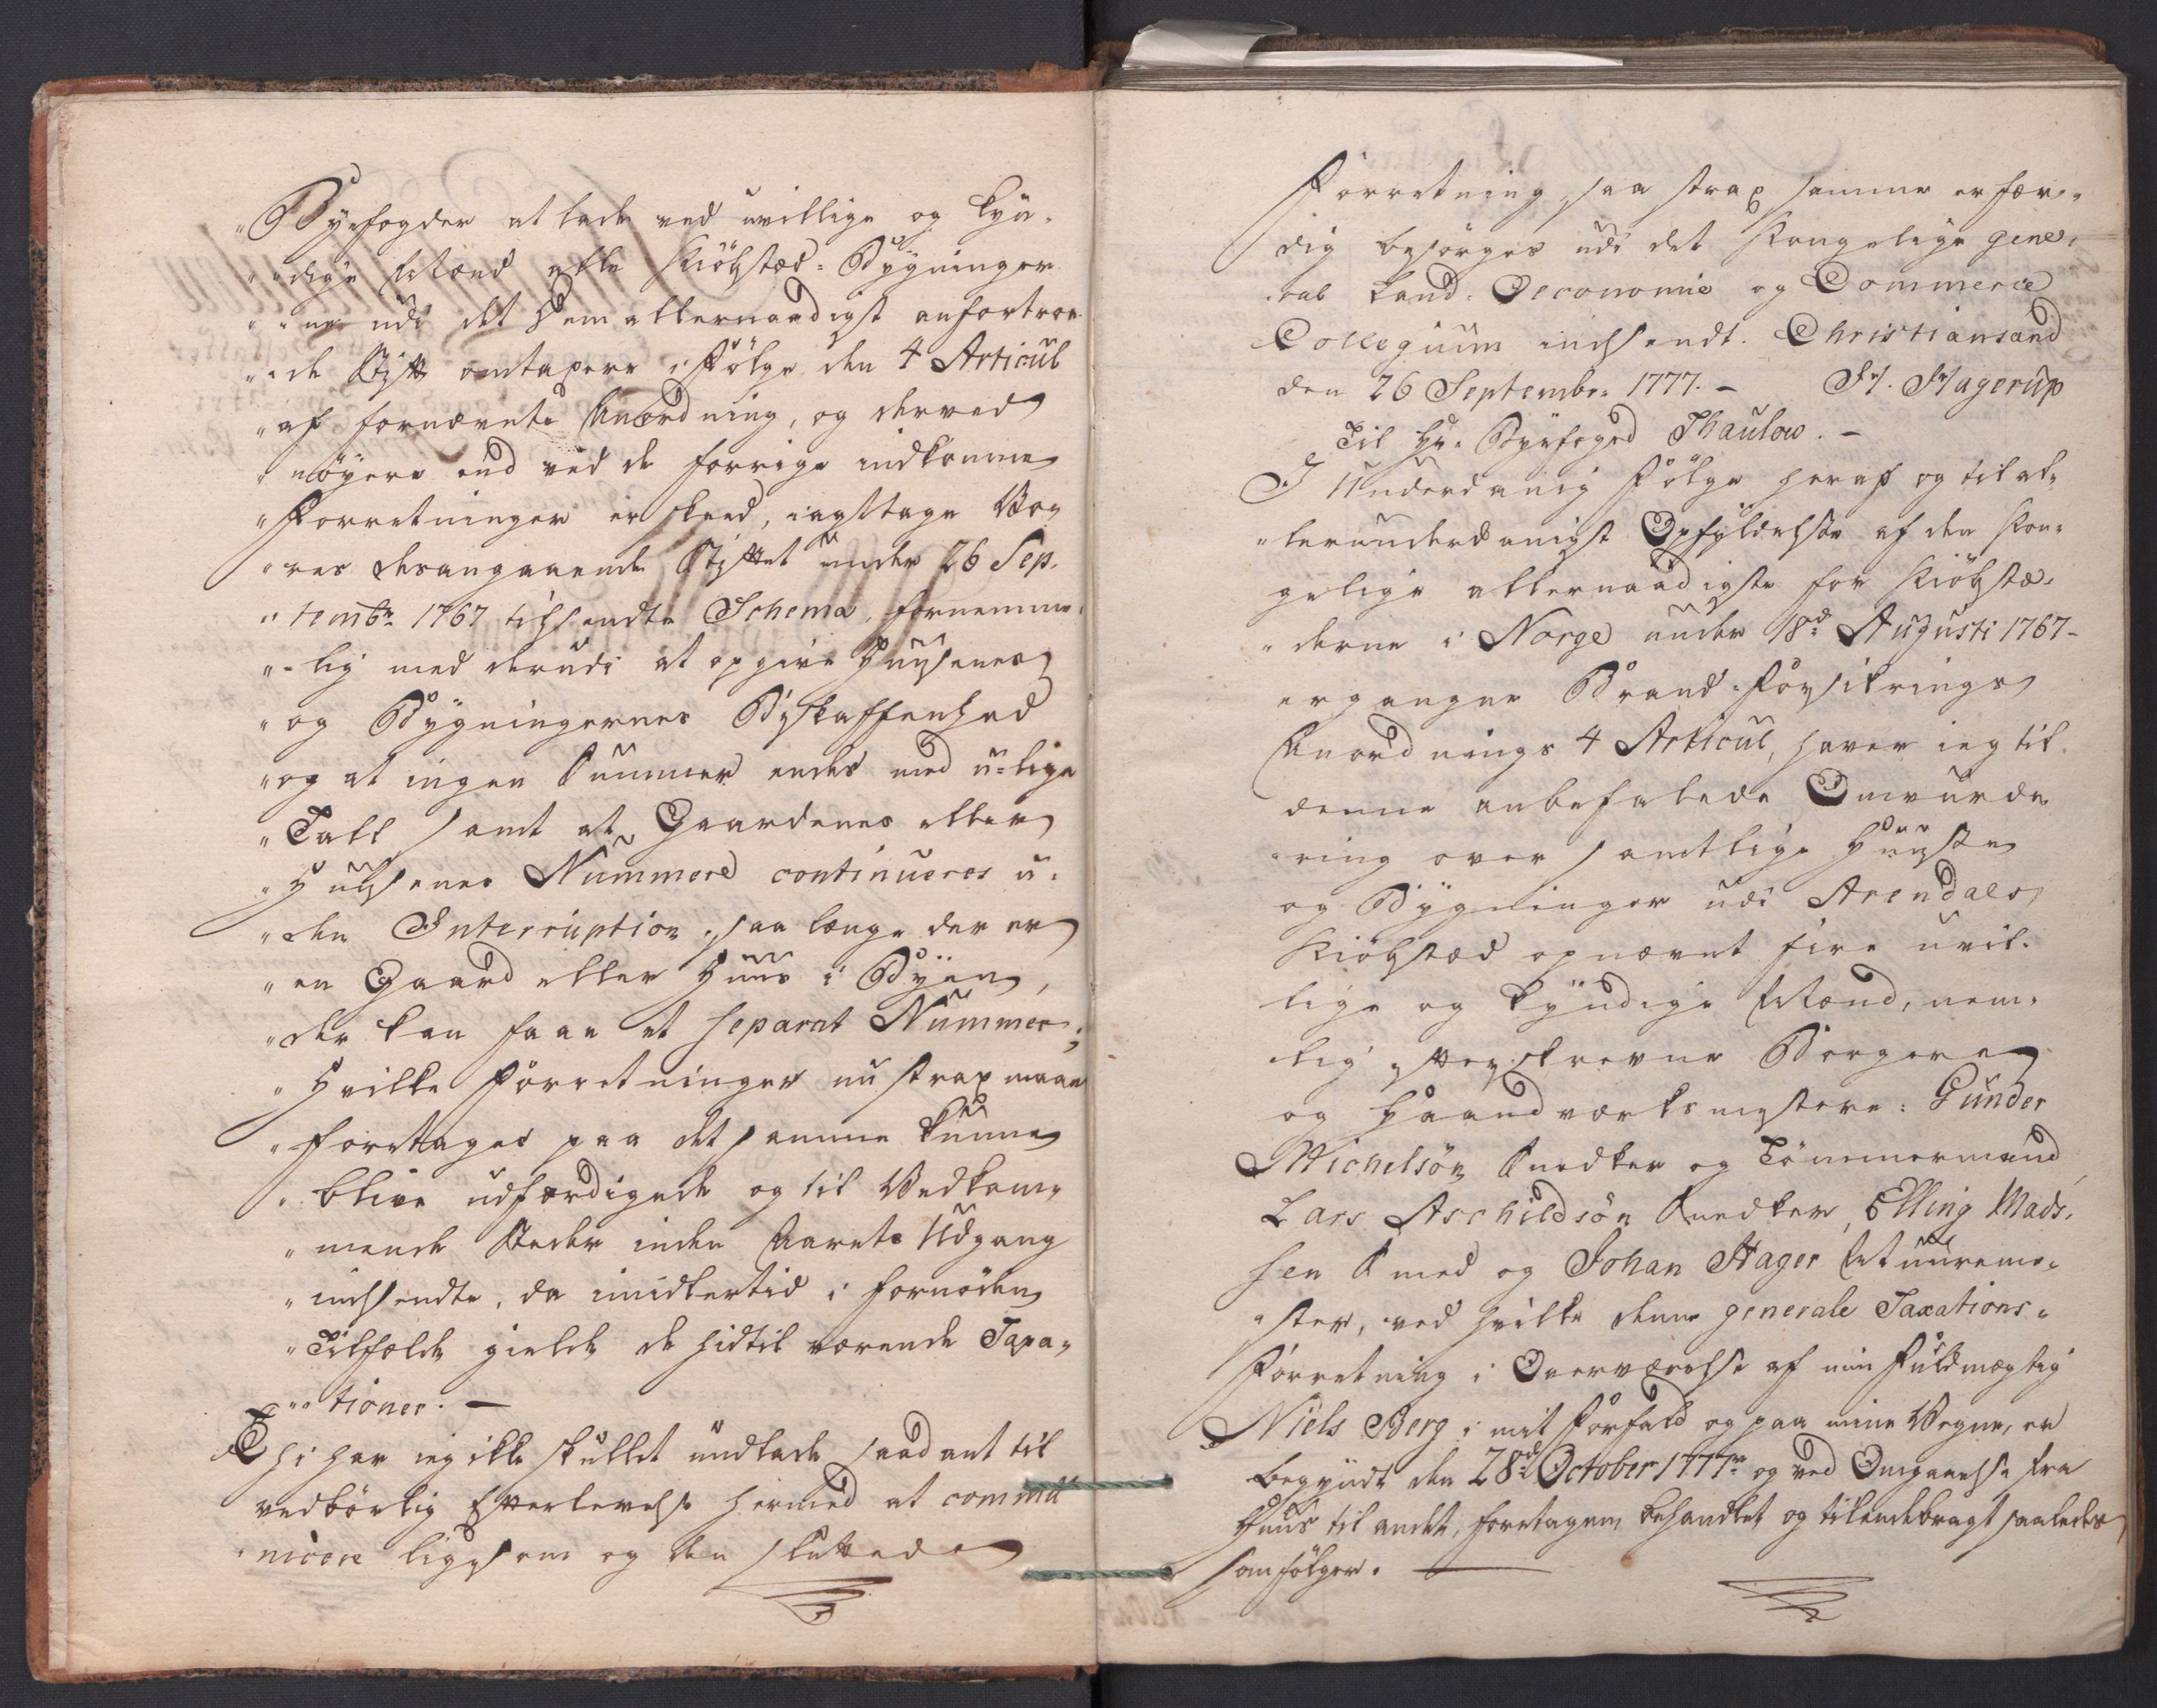 "Byefogder at lade ved uvillige og kyn-
"-dige Mænd alle Kiöbstæd-Bygninger
"-ne udi det Dem allernaadigst anfortroe
"-de Stift omtaxere i Fölge den 4 Articul
"af fornævnte Anordning, og derved
"nöyere end ved de forrige indkomne
"Forretninger er skeed, iagttage Vo-
"res desangaaende Stiftet under 26 Sep-
"tembr 1767 tilsendte Schema, fornemme-
"-lig med derudi at opgive Huusenes
"og Bygningernes Beskaffenhed
"og at ingen Summer endes med u-lige
"Tall samt at Gaardenes eller
"Huusenes Nummere continueres u-
"den Interruption, saa længe der er
"en Gaard eller Huus i Byen,
"der kan faae et separat Nummer;
"Hvilke Forretninger nu strax maae
"foretages paa det samme kunne
"blive udfærdigede og til Vedkom-
"mende Steder inden Aarets Udgang
"indsendte, da imidlertid i fornöden
"Tilfælde gielde de hidtil værende Taxa-
"-tioner. -
Thi har ieg ikke skullet undlade saadant til
vedbörlig Efterlevelse hermed at commu
nicere ligesom og den sluttede
Forretning, saa strax samme er fær-
dig besörges udi det Kongelige gene-
ral Land-Oeconomie og Commerce
Collegium indsendt. Christiansand
den 26 Septembr 1777. - H. Hagerup
Til Hr. Byefoged Thaulow. -
I Underdanig Fölge heraf og til al-
"lerunderdanigst Opfyldelse af den Kon-
gelige allernaadigste for Kiöbstæ-
"derne i Norge under 18d Augusti 1767-
ergangne Brand-Forsikrings
Anordnings 4 Articul, haver ieg til
denne anbefalede Omvurde
ring over samtlige Huuse
og Bygninger udi Arendals
Kiöbstæd opnævnt fire uvil-
lige og kyndige Mænd, nem-
lig efterskrevne Borgere
og Haandværksmestere: Gunder
Michelsön Snedker og Tömmermand,
Lars Aschildsön Snedker, Elling Mads-
sen Smed og Johan Hager Muureme-
ster, ved hvilke denne generale Taxations-
Forretning i Overværelse af min Fuldmægtig
Niels Berg i mit Forfald og paa mine Vegne, er
begyndt den 28de October 1777 og ved Omgaaelse fra
Huus til andet, foretagen, behandlet og tilendebragt saaledes
som fölger.